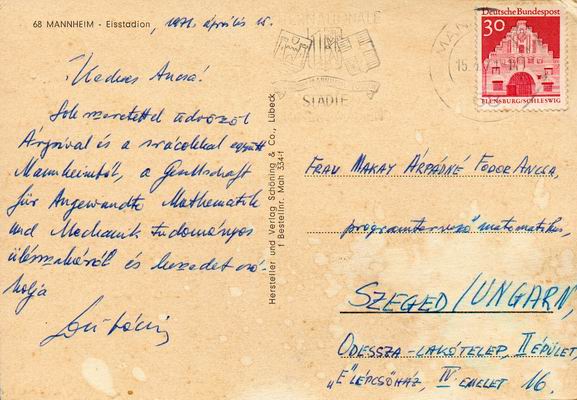 68 MANNHEIM - Eisstadion
1971. április 15.
Kedves Ancsa!
Sok szeretettel üdvözöl
Árpival és a srácokkal együtt
Mannheimból, a Gesellschaft
für Angewandte Mathematik
und Mechanik tudományos
ülésszakáról és kezedet csó-
kolja
Hersteller und Verlag Schöning & Co., Lübeck
Bestellnr. Mah 334-f
MANNHEIM
STÄDTE
15.4.
Deutsche Bundespost
30
FLENSBURG/SCHLESWIG
FRAU MAKAY ÁRPÁDNÉ FODOR ANCSA,
programtervező matematikus,
SZEGED/UNGARN,
ODESSZA-LAKÓTELEP, II ÉPÜLET,
"E" LÉPCSŐHÁZ, IV. EMELET 16.